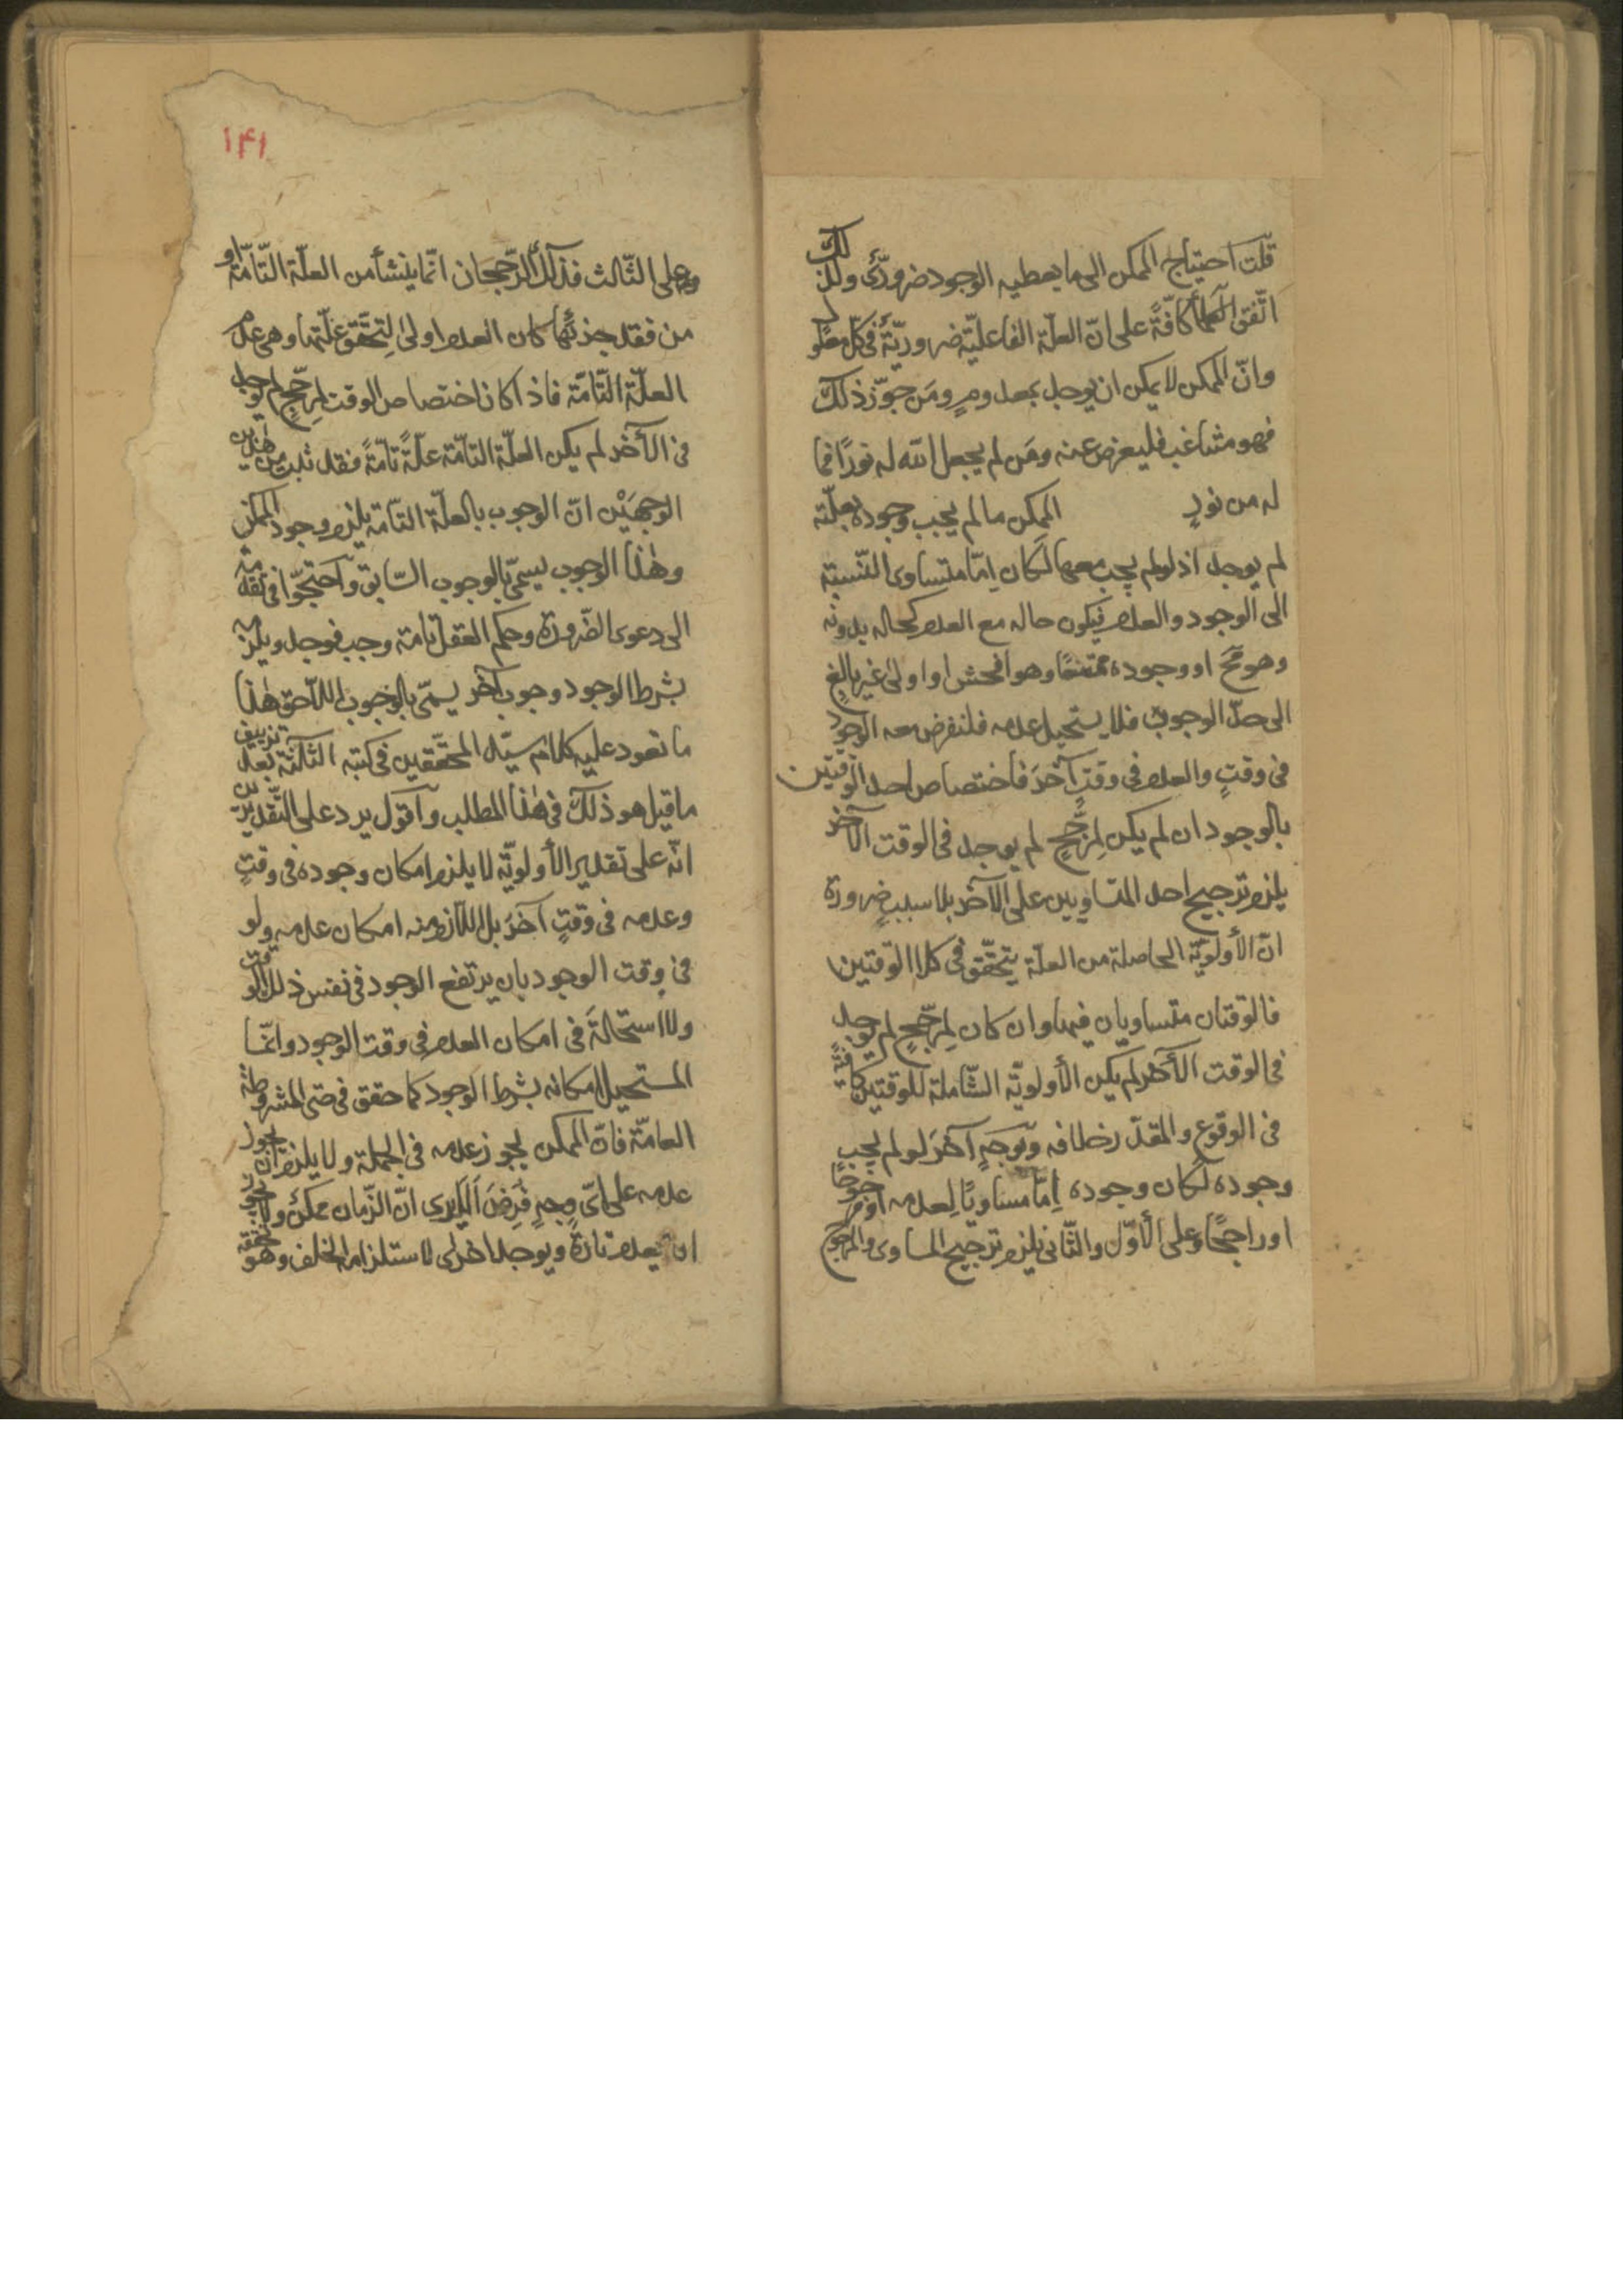 قلت احتياج الممكن الى ما يعطيه الوجود ضروريّ ولذلك
اتّفق العقلاء كافّةً على انّ العلّة الفاعليّة ضروريّة فى كلّ معلول
وانّ الممكن لا يمكن ان يوجد بمعدومٍ ومَن جوّز ذلك
فهو مشاغب فليعرض عنه ومَن لم يجعل الله له نورًا فما
له من نورٍ الممكن ما لم يجب وجوده بعلّته
لم يوجد اذ لو لم يجب معها لكان اِمّا متساوى النّسبة
الى الوجود والعدم فيكون حاله مع العلة كحاله بدونه
وهو مح او وجوده ممتنعًا وهو افحش او اولى غير بالغٍ
الى حدّ الوجوب فلا يستحيل عدمه فلنفرض معه الوجود
فى وقتٍ والعدم فى وقتٍ آخَرَ فاختصاص احد الوقتين
بالوجود ان لم يكن لمرجّحٍ لم يوجد فى الوقت الآخر
يلزم ترجيح احد المتساويين على الآخر بلا سببٍ ضرورة
انّ الأولويّة الحاصلة من العلّة يتحقّق فى كلا الوقتين
فالوقتان متساويان فيها وان كان لمرجّحٍ لم يوجد
فى الوقت الآخر لم يكن الأولويّة الشّاملة للوقتين كافيةً
فى الوقوع والمقدّر خلافه وبوجهٍ آخَرَ لو لم يجب
وجوده لكان وجوده اِمّا مساويًا لعدمه او مرجوحًا
او راجحًا وعلى الأوّل والثّانى يلزم ترجيح المساوى والمرجوح
۱۴۱
وعلى الثّالث فذلك الرّجحان انّما ينشأ من العلّة التّامّة او
من فقد جزئها كان العدم اولى لتحقّق علّتها وهى عدم
العلّة التّامّة فاذا كان اختصاص الوقت لمرجّحٍ لم يوجد
فى الآخر لم يكن العلّة التّامّة علّةً تامّةً فقد ثبت من هذين
الوجهَيْن انّ الوجوب بالعلّة التّامّة يلزم وجود الممكن
وهٰذا الوجوب يسمّى بالوجوب السّابق واحتجّوا فى تقدّمه
الى دعوى الضّرورة وحكم العقل بانه وجب فوجد ويلزمه
بشرط الوجود وجوب آخر يسمّى بالوجوب اللاّحق هٰذا
ما تعود عليه كلام سيّد المحقّقين فى كتبه الثلاثة بعد تزييف
ما قيل هو ذلك فى هٰذا المطلب واقول يرد على التّقديرين
انّه على تقدير الأولويّة لا يلزم امكان وجوده فى وقتٍ
وعدمه فى وقتٍ آخَرَ بل اللاّزم منه امكان عدمه ولو
فى وقت الوجود بان يرتفع الوجود فى نفس ذلك الوقت
ولا استحالةَ فى امكان العدم فى وقت الوجود وانّما
المستحيل امكانه بشرط الوجود كما حقق فى المشروطة
العامّة فانّ الممكن يجوز عدمه فى الجملة ولا يلزم ان يجوز
عدمه على اىّ وجهٍ فُرِضَ الا يرى انّ الزّمان ممكنٌ ولا يجوز
ان يعدم تارةً ويوجد اخرى لاستلزامه الخلف وهو تحققه